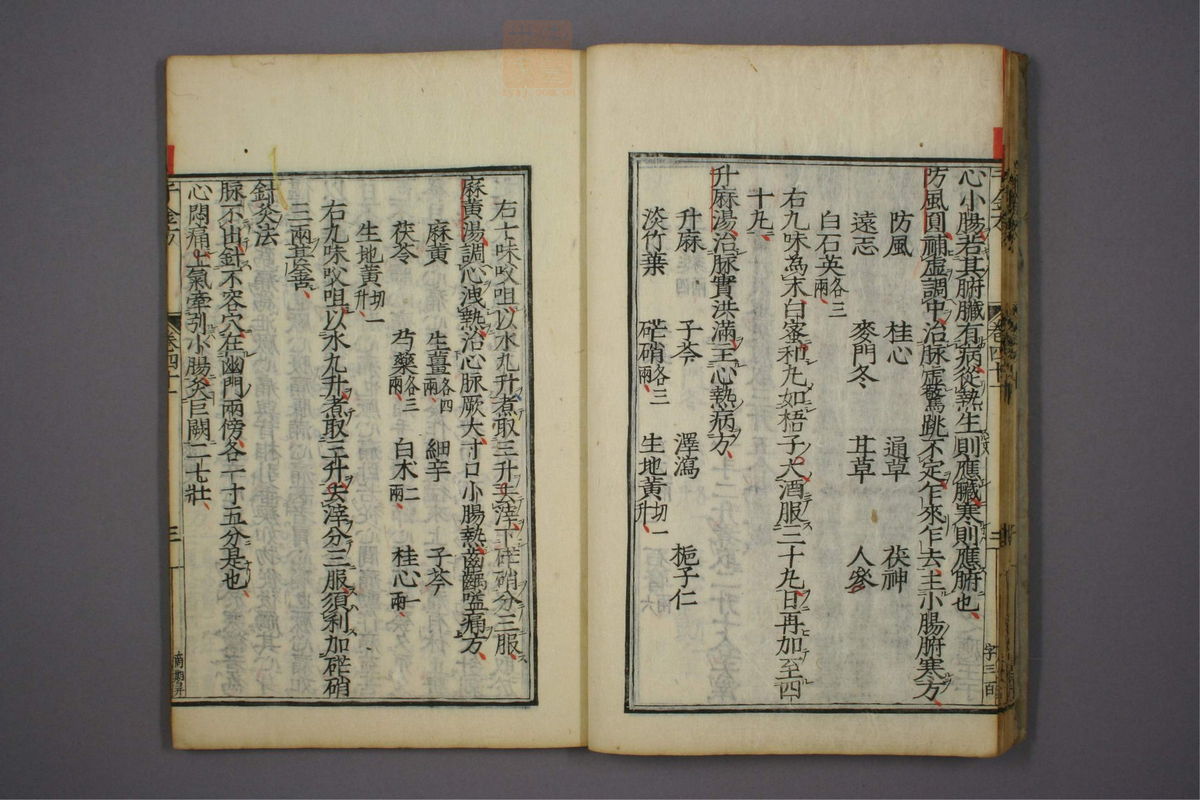 心小腸若其腑臟有病從熱生則應臟寒則應腑也
防風圓補虛調中治脉虛驚跳不定乍來乍去主小腸腑寒方
防風 桂心 通草 茯神
遠志 麥門冬 甘草 人參
白石英各三兩
右九味為末白蜜和丸如梧子大酒服三十丸日再加至四
十丸
升麻湯治脉實洪滿主心熱病方
升麻 子芩 澤瀉 梔子仁
淡竹葉 芒硝各三兩 生地黄切一升
右七味㕮咀以水九升煮取三升去滓下芒硝分三服
麻黄湯調心洩熱治心脉厥大寸口小腸熱齒齲嗌痛方
麻黄 生薑各四兩 細辛 子芩
茯苓 芍藥各三兩 白朮二兩 桂心一兩
生地黄切一升
右九味㕮咀以水九升煮取三升去滓分三服須利加芒硝
三兩甚善
針灸法
脉不出針不容穴在幽門兩傍各一寸五分是也
心悶痛上氣牽引小腸灸巨闕二七壯